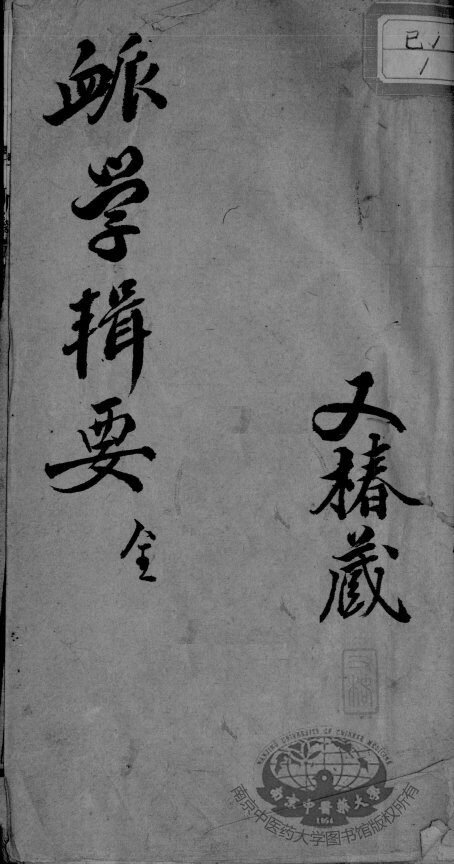 已1
1
衇学輯要
全
又椿藏
NANJING UNIVERSITY OF CHINESE MEDICINE
南京中醫藥大學
1954
南京中医药大学图书馆版权所有